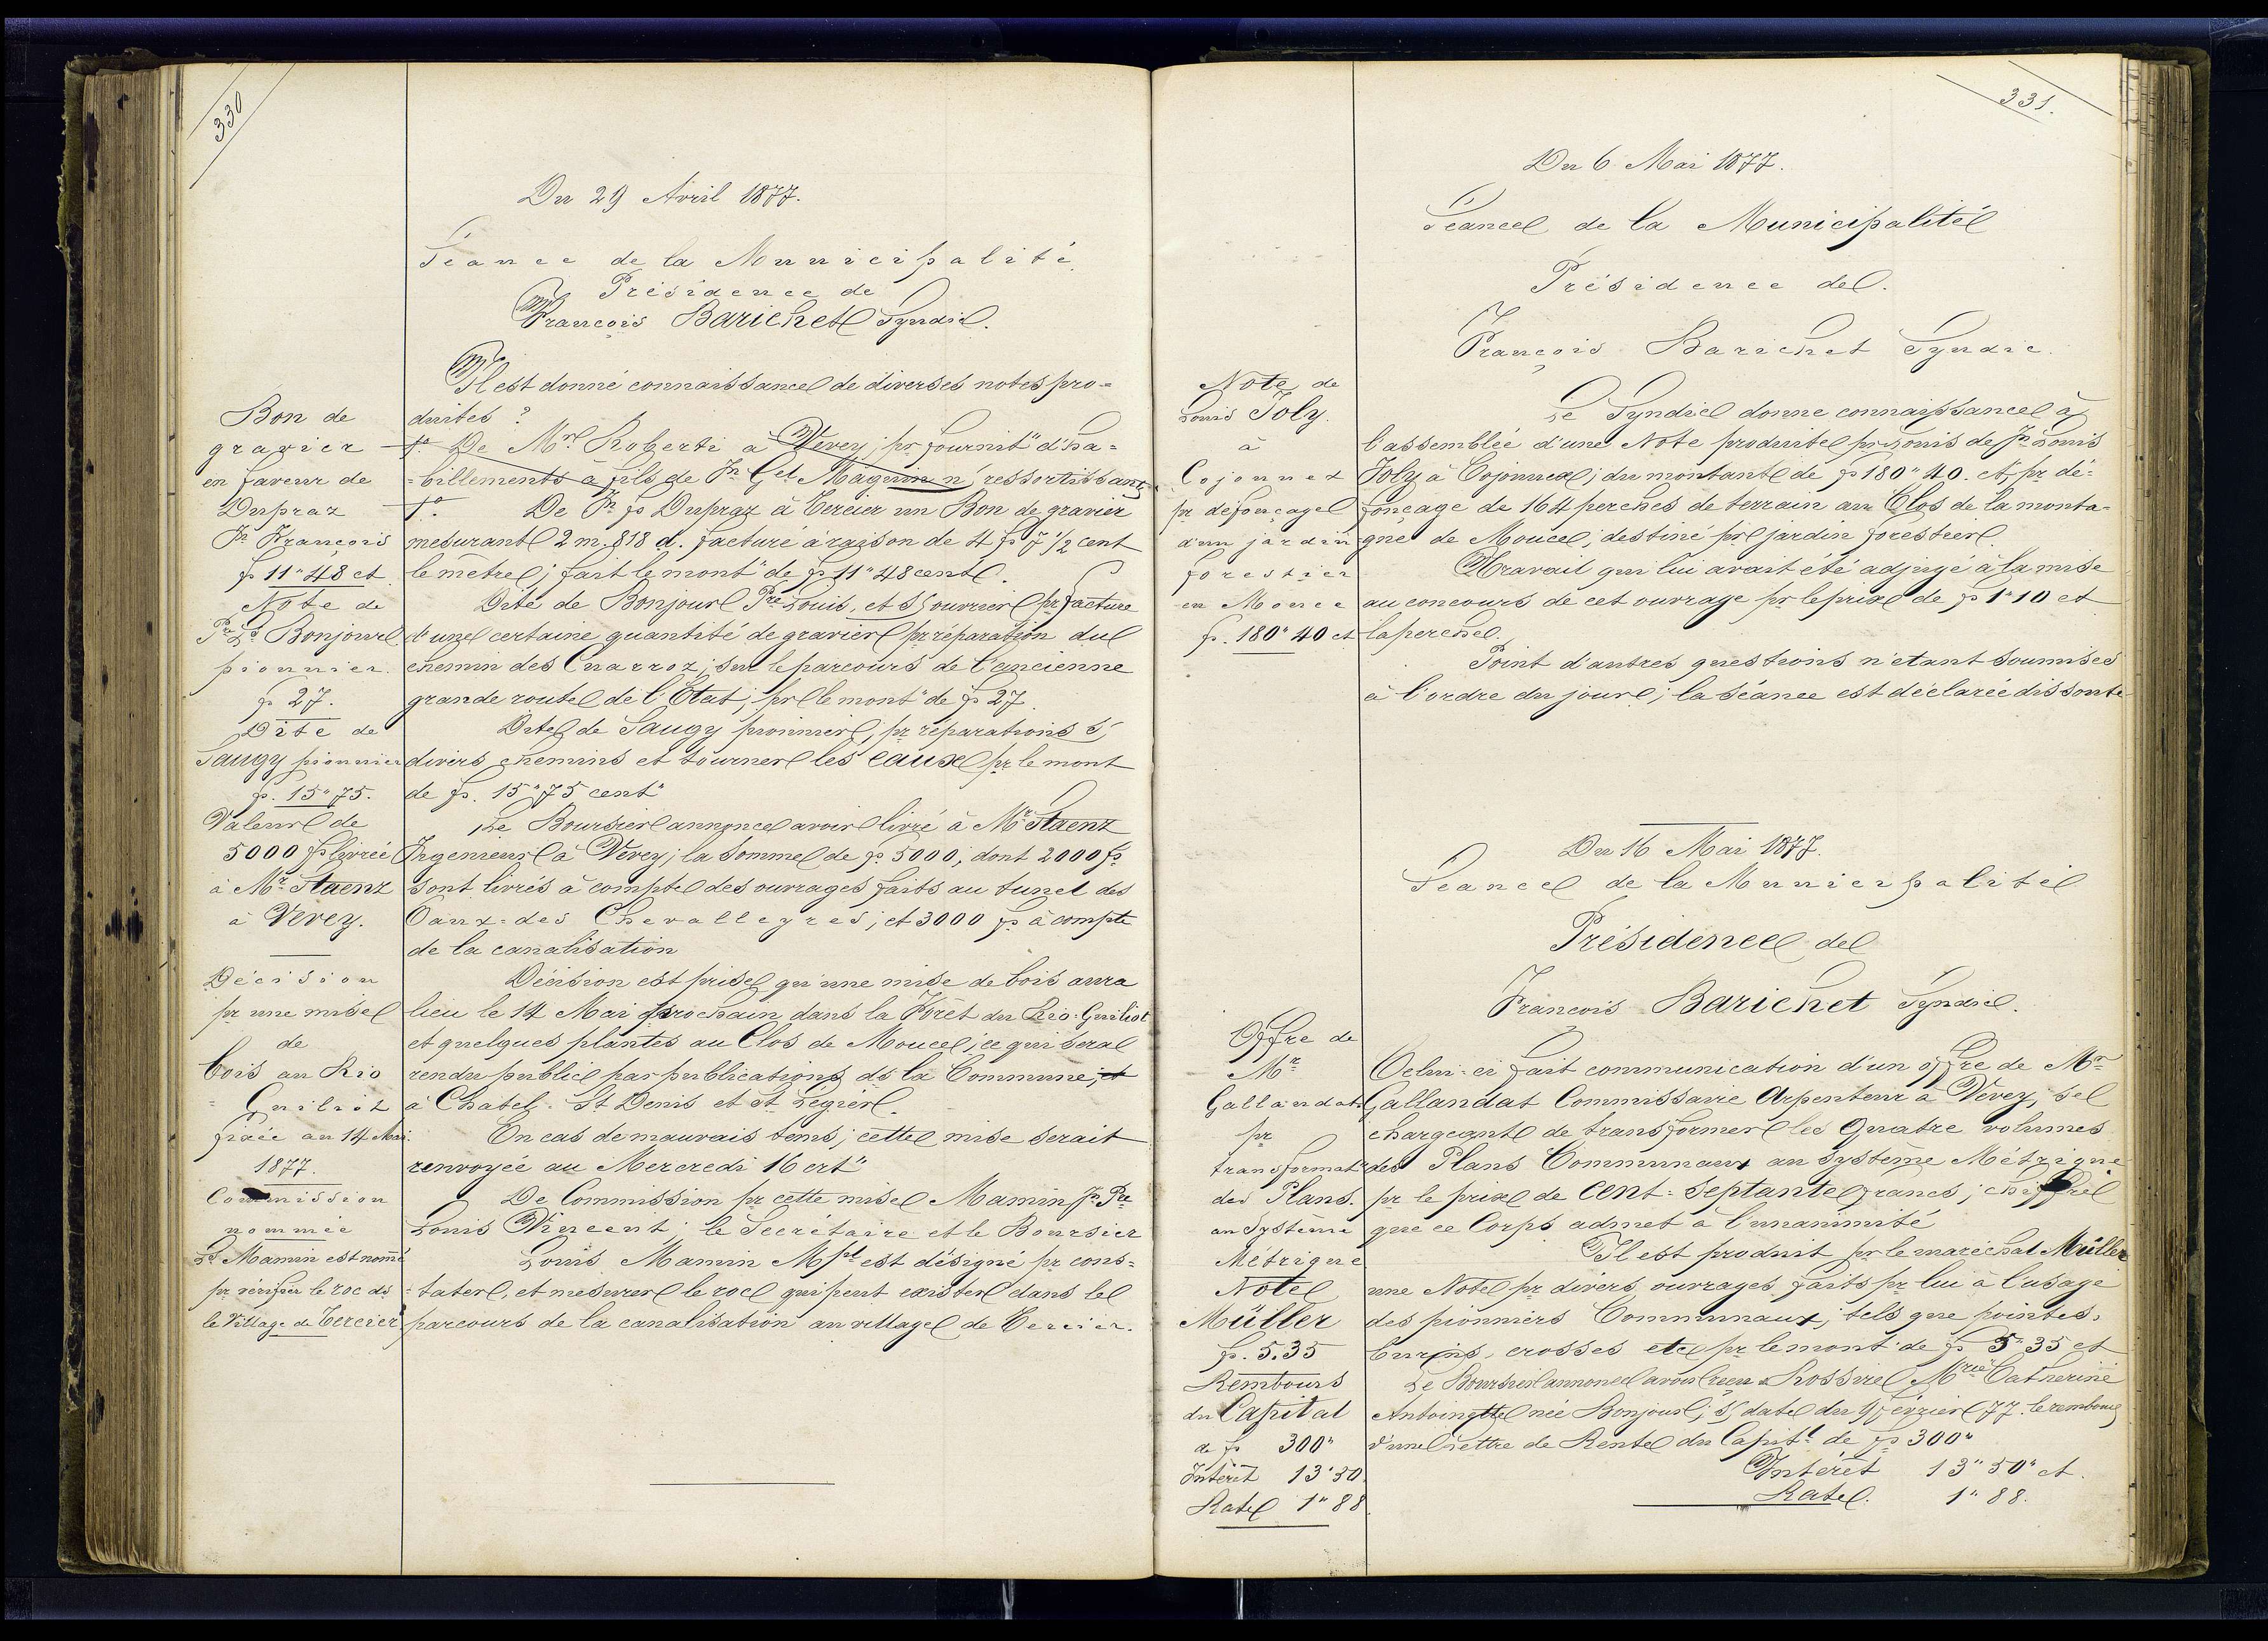 330
Du 29 Avril 1877.
Séance de la Municipalité
Présidence de
François Barichet Syndic.
Bon de
gravier
en faveur de
Dupraz
Jn François
fs 11" 48 ct
Note de
Pre Ls Bonjour
pionnier.
fs 27.
Dite de
Saugy pionnier
fs. 15" 75.
Valeur de
5000 fs livrée
à Mr Staenz
à Vevey.
Décision
pr une mise
de
bois au Rio
= Guiliot
fixée au 14 Mai.
1877.
Commission
nommée
Ls Mamin est nommé
pr vérifier le roc ds
le Village de Tercier
Il est donné connaissance de diverses notes pro=
duites ?
1o De Mr Roberti a Vevey; pr fournit" d'ha=
=billements à fils de Jn Gel Magnin n' ressortissant
1o. De Jn fs Dupraz à Tercier un Bon de gravier
mesurant 2 m. 818 d. facturé à raison de 4 fs 7 1/2 cent
le mètre; fait le mont" de fs 11" 48 cent.
Dite de Bonjour Pre Louis, et s/ ouvrier pr facture
d'une certaine quantité de gravier pr réparation du
chemin des Cuarroz; sur le parcours de l'ancienne
grande route de l'Etat; pr le mont" de fs 27.
Dite de Saugy pionnier; pr réparations s/
divers chemins et tourner les eaux pr le mont
de fs. 15" 75 cent"
Le Boursier annonce avoir livré à Mr Staenz
Ingenieur à Vevey; la somme de fs. 5000; dont 2000 fs
sont livrés à compte des ouvrages faits au tunel des
Vaux=des Chevallegres; et 3000 fs à compte
de la canalisation
Décision est prise qu'une mise de bois aura
lieu le 14 Mai prochain dans la Forêt du Rio=Guiliot
et quelques plantes au Clos de Mouce; ce qui sera
rendu public par publications ds la Commune; et
à Chatel=St Denis et St Legier.
En cas de mauvais tems; cette mise serait
renvoyée au Mercredi 16 crt"
De Commission pr cette mise Mamin Jn Pre
Louis Vincent; le Secrétaire et le Boursier
Louis Mamin Mpl est désigné pr cons=
=tater, et mesurer le roc qui peut exister dans le
parcours de la canalisation au village de Tercier.
331.
Du 6 Mai 1877.
Séance de la Municipalité
Présidence de.
François Barichet Syndic.
Note de
Louis Joly
à
Cojonnex
pr défonçage
d'un jardin
forestier
en Mouce
fs. 180" 40 ct
Le Syndic donne connaissance à
l'assemblée d'une Note produite pr Louis de Jn Louis
Joly à Cojonnex; du montant de fs 180" 40. ct, pr dé=
fonçage de 164 perches de terrain au Clos de la monta=
gne de Mouce; destiné pr jardin forestier.
Travail qui lui avait été adjugé à la mise
au concours de cet ouvrage pr le prix de fs 1" 10 ct
la perche.
Point d'autres questions n'etant soumises
à l'ordre du jour; la séance est déclarée dissoute
Du 16 Mai 1877.
Séance de la Municipalité
Présidence de
François Barichet Syndic.
Offre de
Mr
Gallandat
pr
transformat"
des Plans.
au Système
Métrique
Note
Müller
fs. 5.35
Rembours
du Capital
de fs 300"
Intérêt 13" 50
Rate 1" 88
Celui=ci fait communication d'un offre de Mr
Gallandat Commissaire Arpenteur à Vevey, se
chargeant de transformer les Quatre volumes
des Plans Communaux au système Métrique
pr le prix de cent=septante francs; chiffre
que ce Corps admet à l'unanimité
Il est produit pr le maréchal Müller
une Note pr divers ouvrages faits pr lui à l'usage
des pionniers Communaux; tels que pointes,
burins, crosses etc pr le mont" de fs 5" 35 ct
Le Boursier annonce avoir reçu de Rossire Mrie Catherine
Antoinette née Bonjour; s/ date du 9 février 77. le rembours
d'une Lettre de Rente du Capitl de fs 300"
Intérêt 13" 50" ct.
Rate. 1" 88.